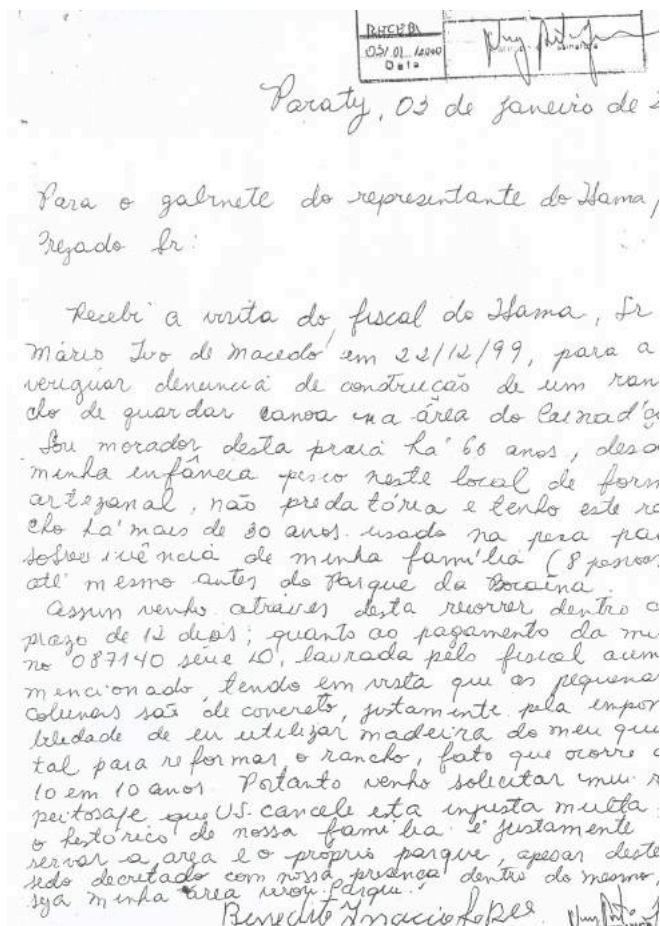 RECEBI
03/01/2000
Data
Paraty, 03 de janeiro de 2
Para o gabinete do representante do Ibama,
Prezado Sr:
Recebi a visita do fiscal do Ibama, Sr
Mário Ivo de Macedo em 22/12/99, para a
veriguar denuncia de construção de um ran
cho de guardar canoa na área do
Sou morador desta praia há 60 anos, desd
minha infância pesco neste local de form
artezanal, não predatória e tenho este ra
cho há mais de 30 anos usado na pesca par
sobrevivência de minha família (8 pessoas
até mesmo antes do Parque da Bocaina.
Assim venho através desta recorrer dentro d
prazo de 12 dias; quanto ao pagamento da mul
no 087140 série D, lavrada pelo fiscal acim
mencionado, tendo em vista que as pequenas
colunas são de concreto, justamente pela impos
bilidade de eu utilizar madeira do meu quin
tal para reformar o rancho, fato que ocorre d
10 em 10 anos. Portanto venho solicitar mui r
peitosa/e que V.S. cancele esta injusta multa
o histórico de nossa família é justamente
servar a área e o próprio parque, apesar deste
sido decretado com nossa presença dentro do mesmo,
seja minha área virou parque.
Benedito Inacio Lopes